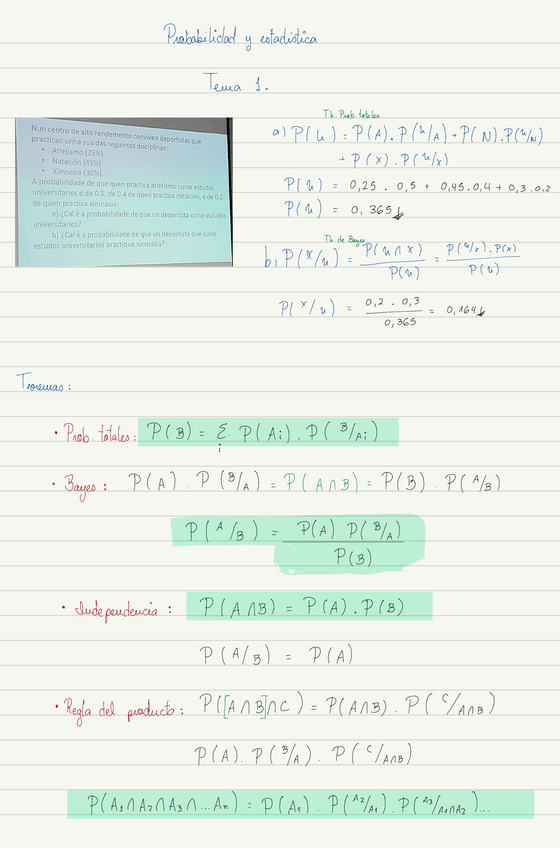 Probabilidad y estadística
Tema 1.
Nun centro de alto rendemento conviven deportistas que
practican unha soa das seguintes disciplinas:
• Atletismo (25%).
• Natación (45%).
• Ximnasia (30%).
A probabilidade de que quen practica atletismo curse estudos
universitarios é de 0.5, de 0.4 de quen practica natación, e de 0.2
de quen practica ximnasia.
a) ¿Cal é a probabilidade de que un deportista curse estudos
universitarios?
b) ¿Cal é a probabilidade de que un deportista que cursa
estudos universitarios practique ximnasia?
Th. Prob. totales
a) P(u) = P(A) . P(u/A) + P(N) . P(u/N)
+ P(x) . P(u/x)
P(u) = 0,25 . 0,5 + 0,45 . 0,4 + 0,3 . 0,2
P(u) = 0,365
Th. de Bayes
b) P(x/u) = P(u∩x) / P(u) = P(u/x) . P(x) / P(u)
P(x/u) = 0,2 . 0,3 / 0,365 = 0,164
Teoremas:
• Prob. totales: P(B) = Σi P(Ai) . P(B/Ai)
• Bayes: P(A) . P(B/A) = P(A∩B) = P(B) . P(A/B)
P(A/B) = P(A) . P(B/A) / P(B)
• Independencia: P(A∩B) = P(A) . P(B)
P(A/B) = P(A)
• Regla del producto: P([A∩B]∩C) = P(A∩B) . P(C/A∩B)
P(A) . P(B/A) . P(C/A∩B)
P(A1∩A2∩A3∩...An) = P(A1) . P(A2/A1) . P(A3/A1∩A2)...